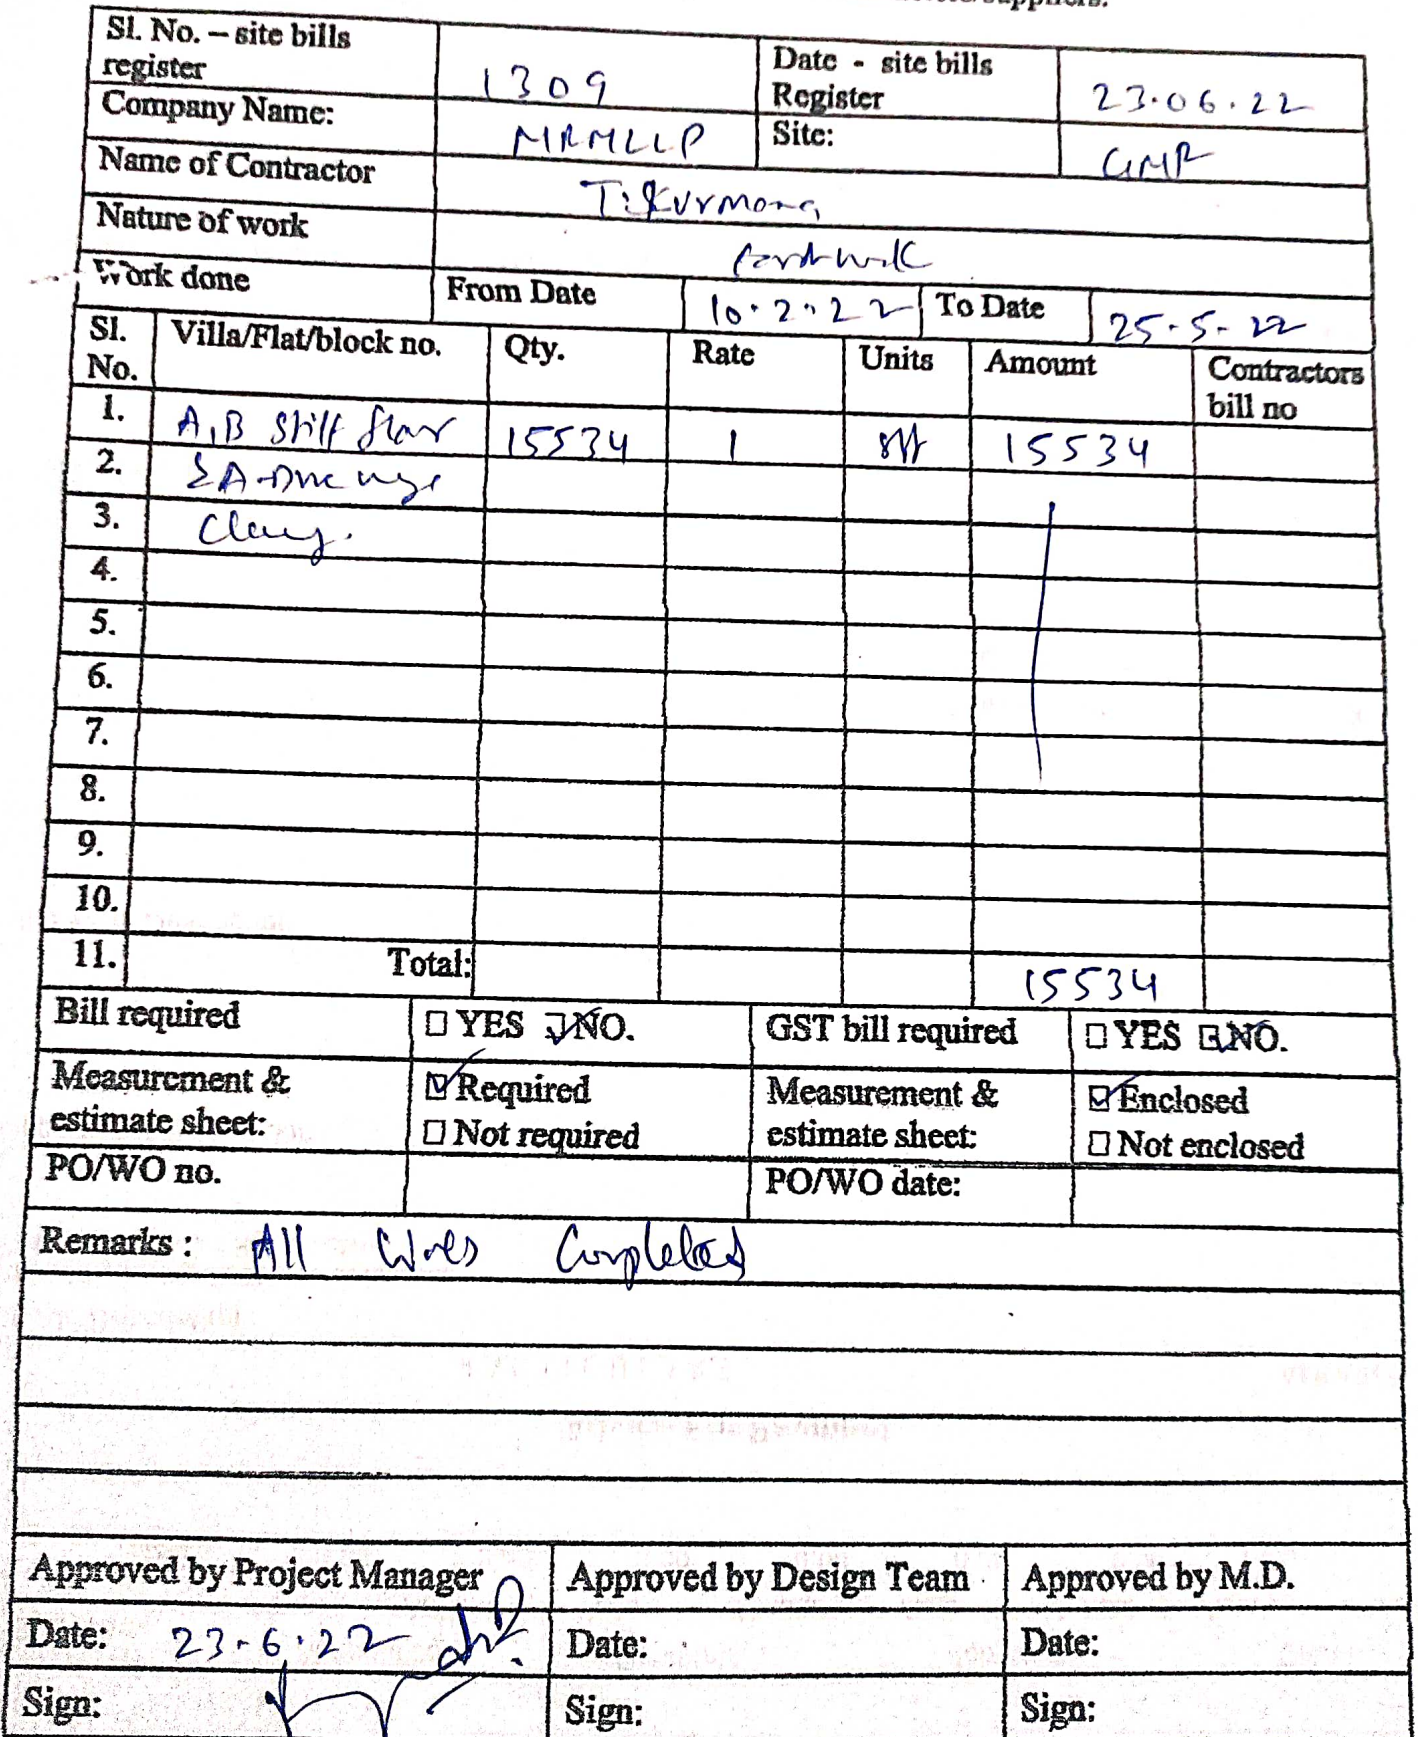 Sl. No. – site bills register 1309 Date - site bills Register 23.06.22
Company Name: MRMLLP Site: GMR
Name of Contractor T. Kurmona
Nature of work
Work done From Date 10.2.22 To Date 25-5-22
Sl. No. Villa/Flat/block no. Qty. Rate Units Amount Contractors bill no
1. A,B Stilt floor 15534 1 sft 15534
2.
3.
4.
5.
6.
7.
8.
9.
10.
11. Total: 15534
Bill required ☐ YES ☑ NO. GST bill required ☐ YES ☑ NO.
Measurement & estimate sheet: ☑ Required ☐ Not required Measurement & estimate sheet: ☑ Enclosed ☐ Not enclosed
PO/WO no. PO/WO date:
Remarks : All Works Completed
Approved by Project Manager Approved by Design Team Approved by M.D.
Date: 23-6.22 Date: Date:
Sign: Sign: Sign: